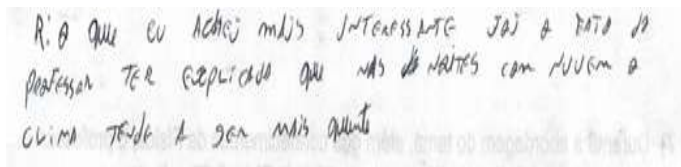 R: O que eu achei mais interessante foi o fato do
professor ter explicado que nas noites com nuvem o
clima tende a ser mais quente